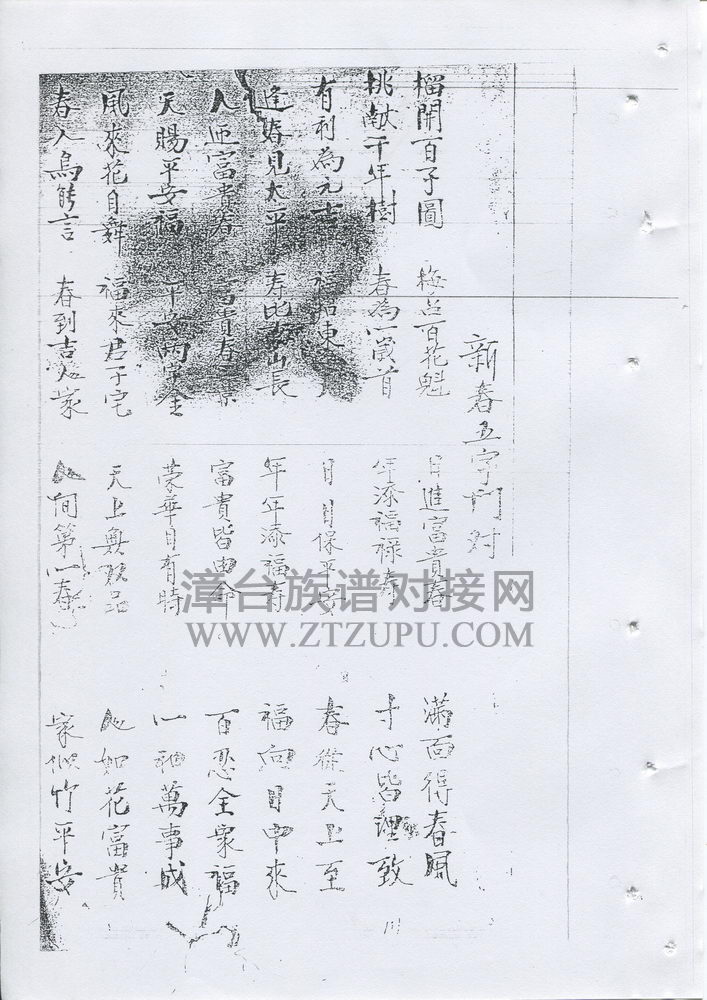 新春五字門對
榴開百子圖 梅占百花魁
日進富貴春 滿面得春風
桃献千年樹 春為一歲首
年添福禄寿 寸心皆理致
有利為元吉 福如東
日日保平安 春從天上至
逢春見太平 寿比山長
年年添福寿 福向目中來
人迎富貴春 富貴春
富貴皆由命 百忍全家福
天賜平安福 平安两字金
荣華自有時 一和萬事成
風來花自舞 福來君子宅
天上無双品 人如花富貴
春入鳥能言 春到吉人家
人间第一春 家似竹平安
漳台族谱对接网
WWW.ZTZUPU.COM